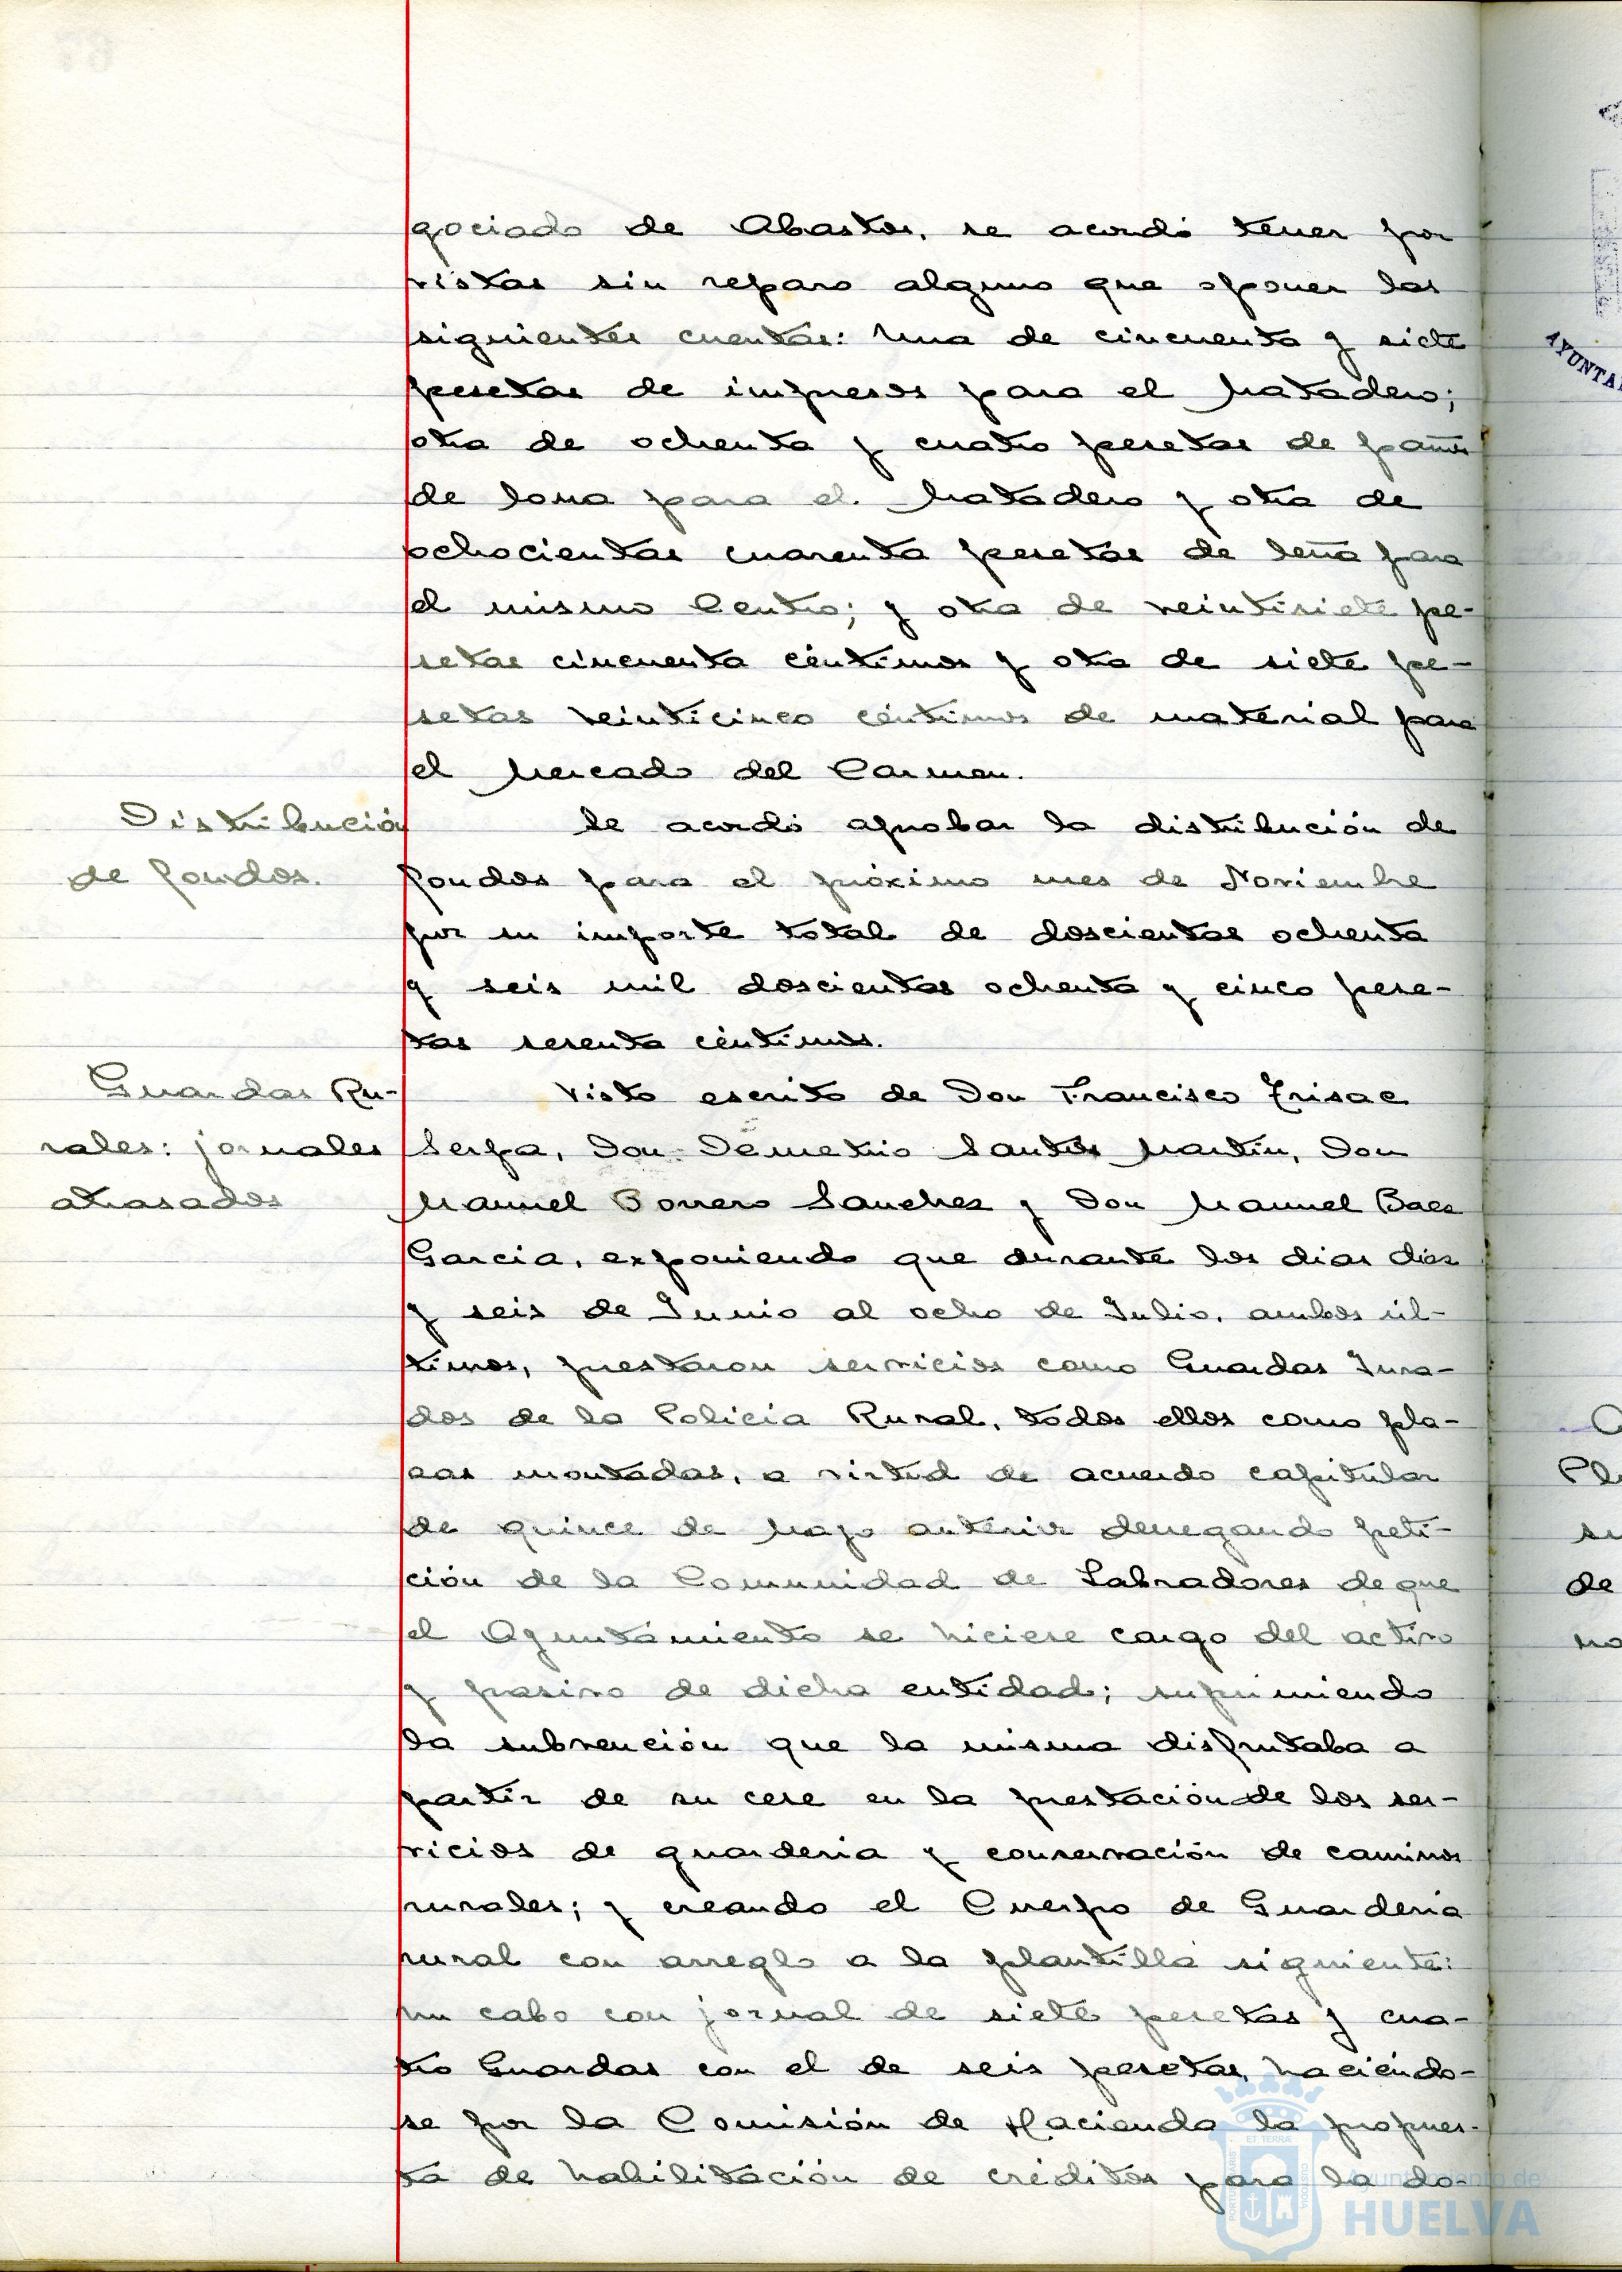 gociado de Abastos, se acordó tener por
vistas sin reparo alguno que oponer las
siguientes cuentas: Una de cincuenta y siete
pesetas de impresos para el Matadero;
otra de ochenta y cuatro pesetas de paños
de lona para el Matadero y otra de
ochocientas cuarenta pesetas de leña para
el mismo Centro; y otra de veintisiete pe-
setas cincuenta céntimos y otra de siete pe-
setas veinticinco céntimos de material para
el Mercado del Carmen.
Distribución
de fondos.
Se acordó aprobar la distribución de
fondos para el próximo mes de Noviembre
por su importe total de doscientas ochenta
y seis mil doscientas ochenta y cinco pese-
tas sesenta céntimos.
Guardas Ru-
rales: jornales
atrasados
Visto escrito de Don Francisco Trisac
Serpa, Don Demetrio Santos Martín, Don
Manuel Borrero Sanchez y Don Manuel Baez
Garcia, exponiendo que durante los dias diez
y seis de Junio al ocho de Julio, ambos úl-
timos, prestaron servicios como Guardas Jura-
dos de la Policia Rural, todos ellos como pla-
zas montadas, a virtud de acuerdo capitular
de quince de Mayo anterior denegando peti-
ción de la Comunidad de Labradores de que
el Ayuntamiento se hiciese cargo del activo
y pasivo de dicha entidad; suprimiendo
la subvención que la misma disfrutaba a
partir de su cese en la prestación de los ser-
vicios de guarderia y conservación de caminos
rurales; y creando el Cuerpo de Guarderia
rural con arreglo a la plantilla siguiente:
un cabo con jornal de siete pesetas y cua-
tro Guardas con el de seis pesetas, haciéndo-
se por la Comisión de Hacienda la propues-
ta de habilitación de créditos para la do-
AYUNTA
Pl
su
de
no
Ayuntamiento de
HUELVA